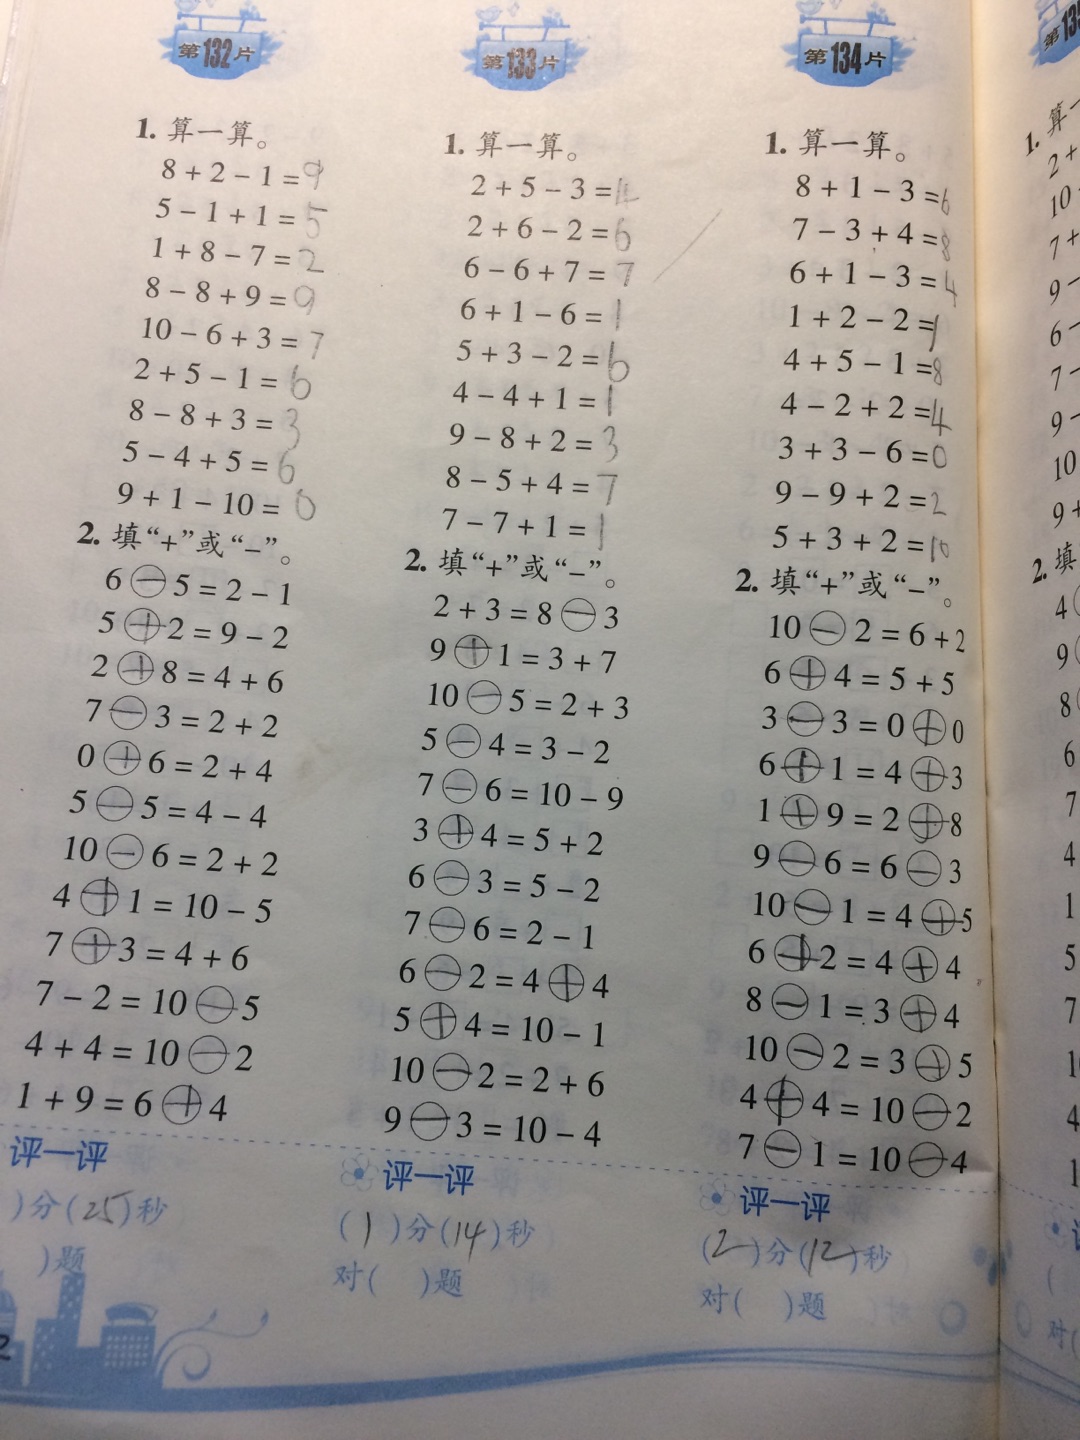 第132片
1. 算一算。
8+2-1=9
5-1+1=5
1+8-7=2
8-8+9=9
10-6+3=7
2+5-1=6
8-8+3=3
5-4+5=6
9+1-10=0
2. 填“+”或“-”。
6-5=2-1
5+2=9-2
2+8=4+6
7-3=2+2
0+6=2+4
5-5=4-4
10-6=2+2
4+1=10-5
7+3=4+6
7-2=10-5
4+4=10-2
1+9=6+4
评一评
)分(25)秒
)题
第133片
1. 算一算。
2+5-3=4
2+6-2=6
6-6+7=7
6+1-6=1
5+3-2=6
4-4+1=1
9-8+2=3
8-5+4=7
7-7+1=1
2. 填“+”或“-”。
2+3=8-3
9+1=3+7
10-5=2+3
5-4=3-2
7-6=10-9
3+4=5+2
6-3=5-2
7-6=2-1
6-2=4+4
5+4=10-1
10-2=2+6
9-3=10-4
评一评
(1)分(14)秒
对( )题
第134片
1. 算一算。
8+1-3=6
7-3+4=8
6+1-3=4
1+2-2=1
4+5-1=8
4-2+2=4
3+3-6=0
9-9+2=2
5+3+2=10
2. 填“+”或“-”。
10-2=6+2
6+4=5+5
3-3=0+0
6+1=4+3
1+9=2+8
9-6=6-3
10-1=4+5
6+2=4+4
8-1=3+4
10-2=3+5
4+4=10-2
7-1=10-4
评一评
(2)分(12)秒
对( )题
1. 算一
2+
10
7+
9-
6-
7-
9-
10
9+
2. 填
4
9
8
6
7
4
1
5
7
4
对(